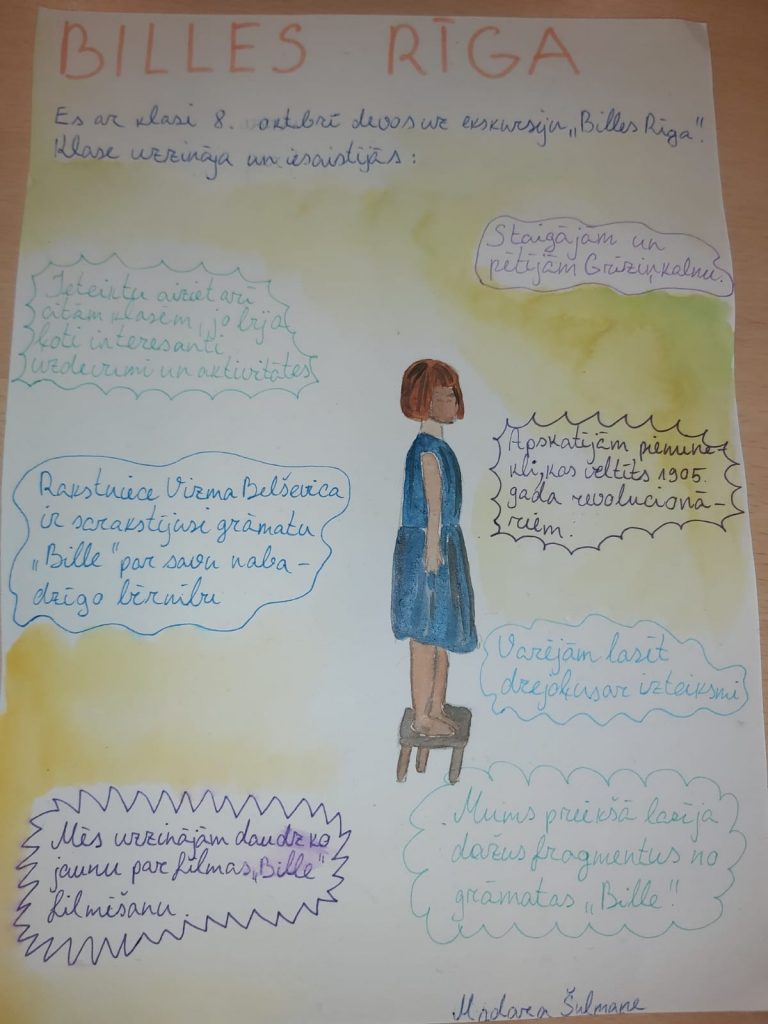 BILLES RĪGA
Es ar klasi 8. oktobrī devos uz ekskursiju „Billes Rīga”.
Klase uzzināja un iesaistījās :
Staigājām un
pētījām Grīziņkalnu.
Ieteiktu aiziet arī
citām klasēm, jo bija
ļoti interesanti
uzdevumi un aktivitātes
Apskatījām piemine-
kli, kas veltīts 1905.
gada revolucionā-
riem.
Rakstniece Vizma Belševica
ir sarakstījusi grāmatu
„Bille” par savu naba-
dzīgo bērnību
Varējām lasīt
dzejoļus ar izteiksmi
Mēs uzzinājām daudz ko
jaunu par filmas „Bille”
filmēšanu.
Mums priekšā lasīja
dažus fragmentus no
grāmatas „Bille”.
Madara Šulmane